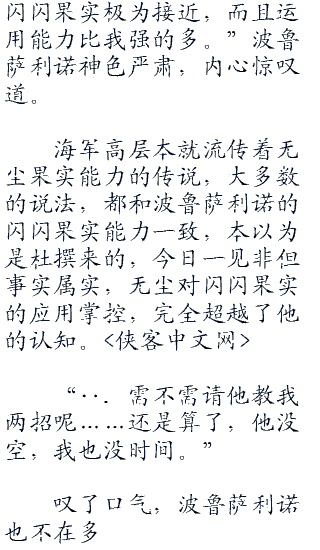 闪闪果实极为接近，而且运
用能力比我强的多。”波鲁
萨利诺神色严肃，内心惊叹
道。
海军高层本就流传着无
尘果实能力的传说，大多数
的说法，都和波鲁萨利诺的
闪闪果实能力一致，本以为
是杜撰来的，今日一见非但
事实属实，无尘对闪闪果实
的应用掌控，完全超越了他
的认知。<侠客中文网>
“··．需不需请他教我
两招呢……还是算了，他没
空，我也没时间。”
叹了口气，波鲁萨利诺
也不在多